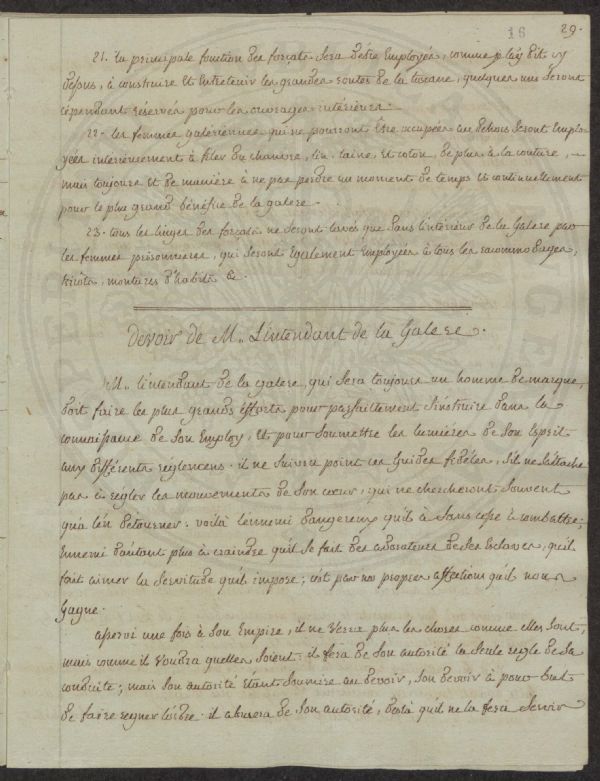 16 29.
21. la principale fonction des forçats sera d'être Employés, comme il a été dit cy
dessus, à construire et Entretenir les grandes routes de la toscane, quelques uns seront
cependant réservés pour les ouvrages intérieurs.
22. les femmes galeriennes qui ne pourront Être occupées au dehors seront Emplo-
yées intérieurement à filer du chanvre, lin, laine, et coton, de plus à la couture,
mais toujours et de manière à ne pas perdre un moment de temps et continuellement
pour le plus grand bénéfice de la galere.
23. tous les linges des forçats ne seront lavés que dans l'intérieur de la Galere par
les femmes prisonnieres, qui seront également Employées à tous les racommodages,
tricots, montures d'habits &.
Devoir de M.. L'intendant de la Galere.
M.. l'intendant de la galere, qui sera toujours un homme de marque,
doit faire les plus grands efforts pour parfaittement s'instruire dans la
connoissance de son Employ, et pour soumettre les lumieres de son Esprit
aux différents réglemens. il ne suivra point ces guides fidèles, s'il ne s'attache
pas à regler les mouvements de son cœur, qui ne chercheront souvent
qu'à l'en détourner. voilà l'ennemi dangereux qu'il a sans cesse à combattre;
Ennemi d'autant plus à craindre qu'il se fait des adorateurs de ses Esclaves, qu'il
fait aimer la servitude qu'il impose; c'est par nos propres affections qu'il nous
gagne.
asservi une fois à son Empire, il ne verra plus les choses comme elles sont,
mais comme il voudra qu'elles soient. il fera de son autorité la seule regle de sa
conduite; mais son autorité étant soumise au devoir, son devoir a pour but
de faire regner l'ordre. il abusera de son autorité, dès là qu'il ne la fera servir